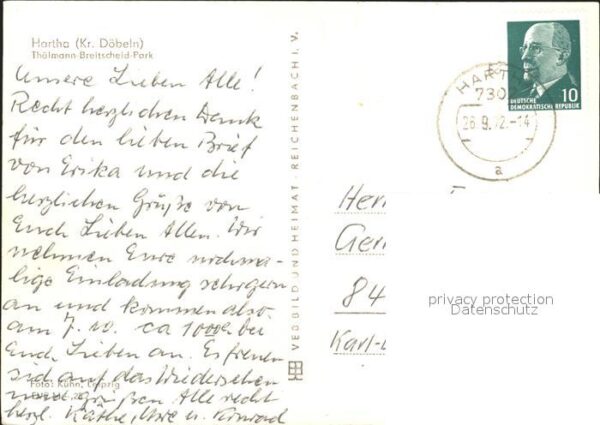 Hartha (Kr. Döbeln)
Thälmann-Breitscheid-Park
Unsere Lieben Alle!
Recht herzlichen Dank
für den lieben Brief
von Erika und die
herzlichen Grüße von
Euch Lieben Allen. Wir
nehmen Eure nochma-
lige Einladung sehr gern
an und kommen also
am 7. 10. ca 1000h bei
Euch Lieben an. Es freuen
sich auf das Wiedersehen
und grüßen Alle recht
herzl. Käthe, u. Konrad
Foto: Kühn, Leipzig
VEB BILD UND HEIMAT · REICHENBACH I. V.
HARTH
7302
26.9.72.-14
a
10
DEUTSCHE
DEMOKRATISCHE REPUBLIK
Her
Ger
84
Karl-
privacy protection
Datenschutz